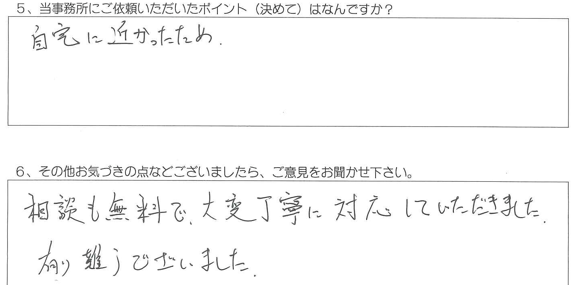 5、当事務所にご依頼いただいたポイント（決めて）はなんですか？
自宅に近かったため.
6、その他お気づきの点などございましたら、ご意見をお聞かせ下さい。
相談も無料で、大変丁寧に対応していただきました.
有り難うございました.